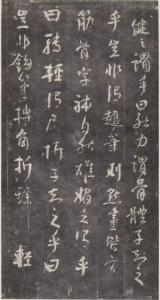 健之謂乎曰然力謂骨體子知之
乎豈非謂趯筆則點畫皆有
筋骨字體自然雄媚之謂乎
曰然輕謂曲折子知之乎曰
豈非鈎筆轉角折鋒輕